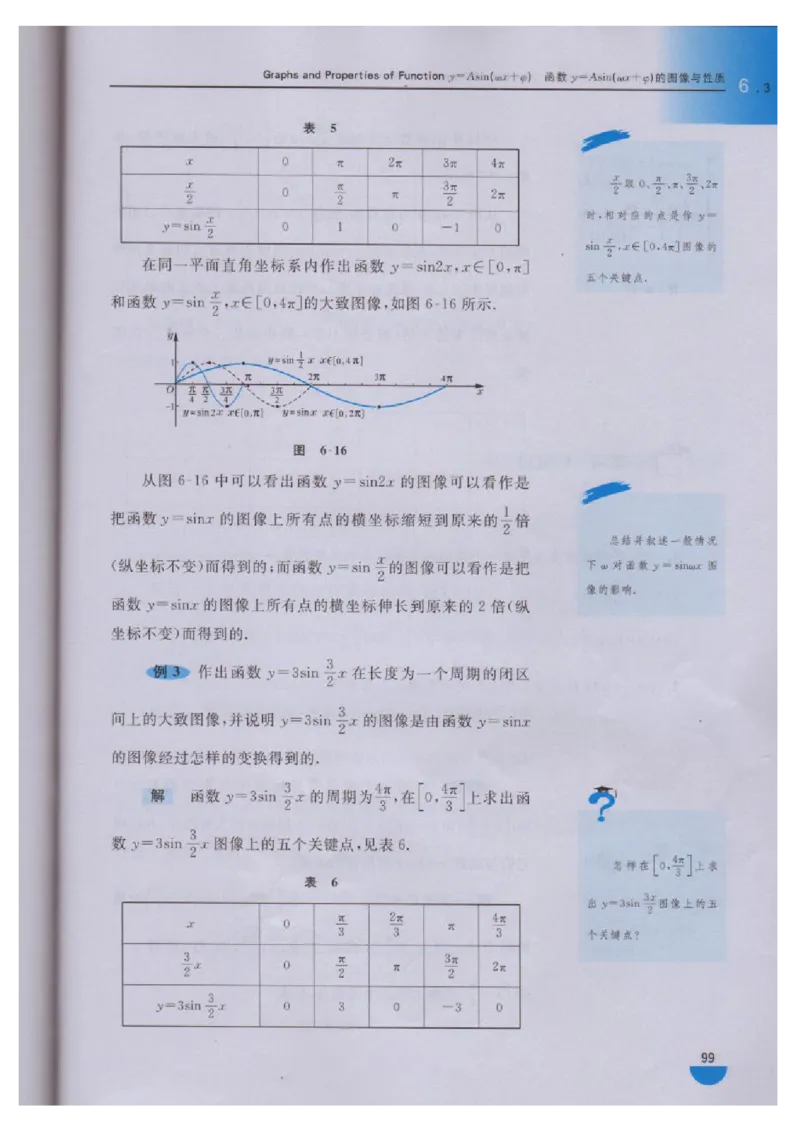 Graphs and Properties of Function y=Asin(ωx+φ) 函数 y=Asin(ωx+φ)的图像与性质 6.3
表 5
x 0 π 2π 3π 4π
x/2 0 π/2 π 3π/2 2π
y=sin x/2 0 1 0 −1 0
x/2取 0、π/2、π、3π/2、2π
时,相对应的点是作 y=
sin x/2,x∈[0,4π]图像的
五个关键点.
在同一平面直角坐标系内作出函数 y=sin2x,x∈[0,π]
和函数 y=sin x/2,x∈[0,4π]的大致图像,如图 6-16 所示.
y
1 y=sin 1/2 x x∈[0,4π]
π 2π 3π 4π
O π/4 π/2 3π/4 3π/2 x
-1 y=sin2x x∈[0,π] y=sinx x∈[0,2π]
图 6-16
从图 6-16 中可以看出函数 y=sin2x 的图像可以看作是
把函数 y=sinx 的图像上所有点的横坐标缩短到原来的1/2倍
(纵坐标不变)而得到的;而函数 y=sin x/2的图像可以看作是把
函数 y=sinx 的图像上所有点的横坐标伸长到原来的 2 倍(纵
坐标不变)而得到的.
总结并叙述一般情况
下 ω 对函数 y=sinωx 图
像的影响.
例 3 作出函数 y=3sin 3/2x 在长度为一个周期的闭区
间上的大致图像,并说明 y=3sin 3/2x 的图像是由函数 y=sinx
的图像经过怎样的变换得到的.
解 函数 y=3sin 3/2x 的周期为4π/3,在[0,4π/3]上求出函
数 y=3sin 3/2x 图像上的五个关键点,见表 6.
?
怎样在[0,4π/3]上求
出 y=3sin 3x/2图像上的五
个关键点?
表 6
x 0 π/3 2π/3 π 4π/3
3/2x 0 π/2 π 3π/2 2π
y=3sin 3/2x 0 3 0 −3 0
99